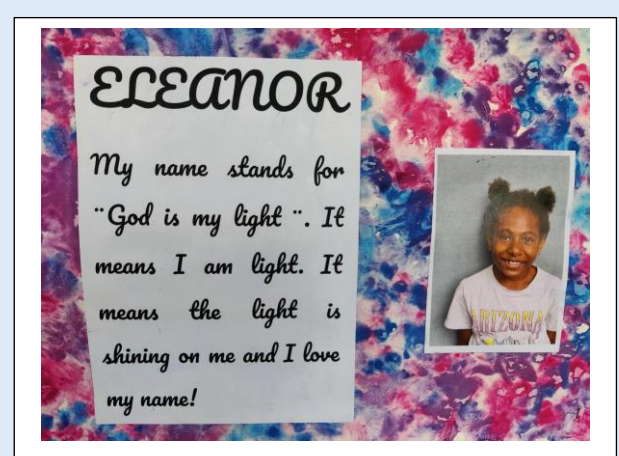 ELEANOR
My name stands for
¨God is my light ¨. It
means I am light. It
means the light is
shining on me and I love
my name!
ARIZONA